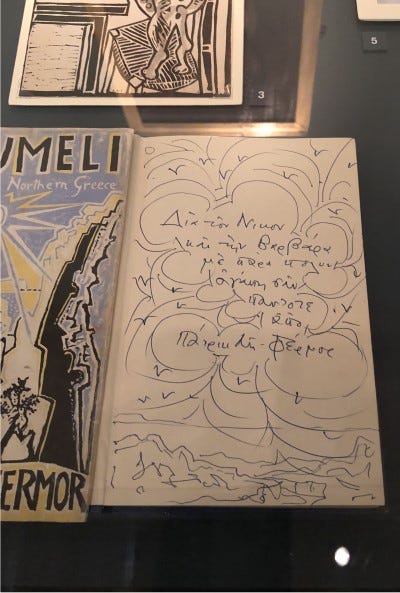 3
5
UMELI
Northern Greece
ERMOR
Διὰ τὸν Νικον
καὶ τὴν Βαρβάρα
μὲ πάρα
ἀγάπην
πάντοτε
Πάτρικ Λη-Φέρμος